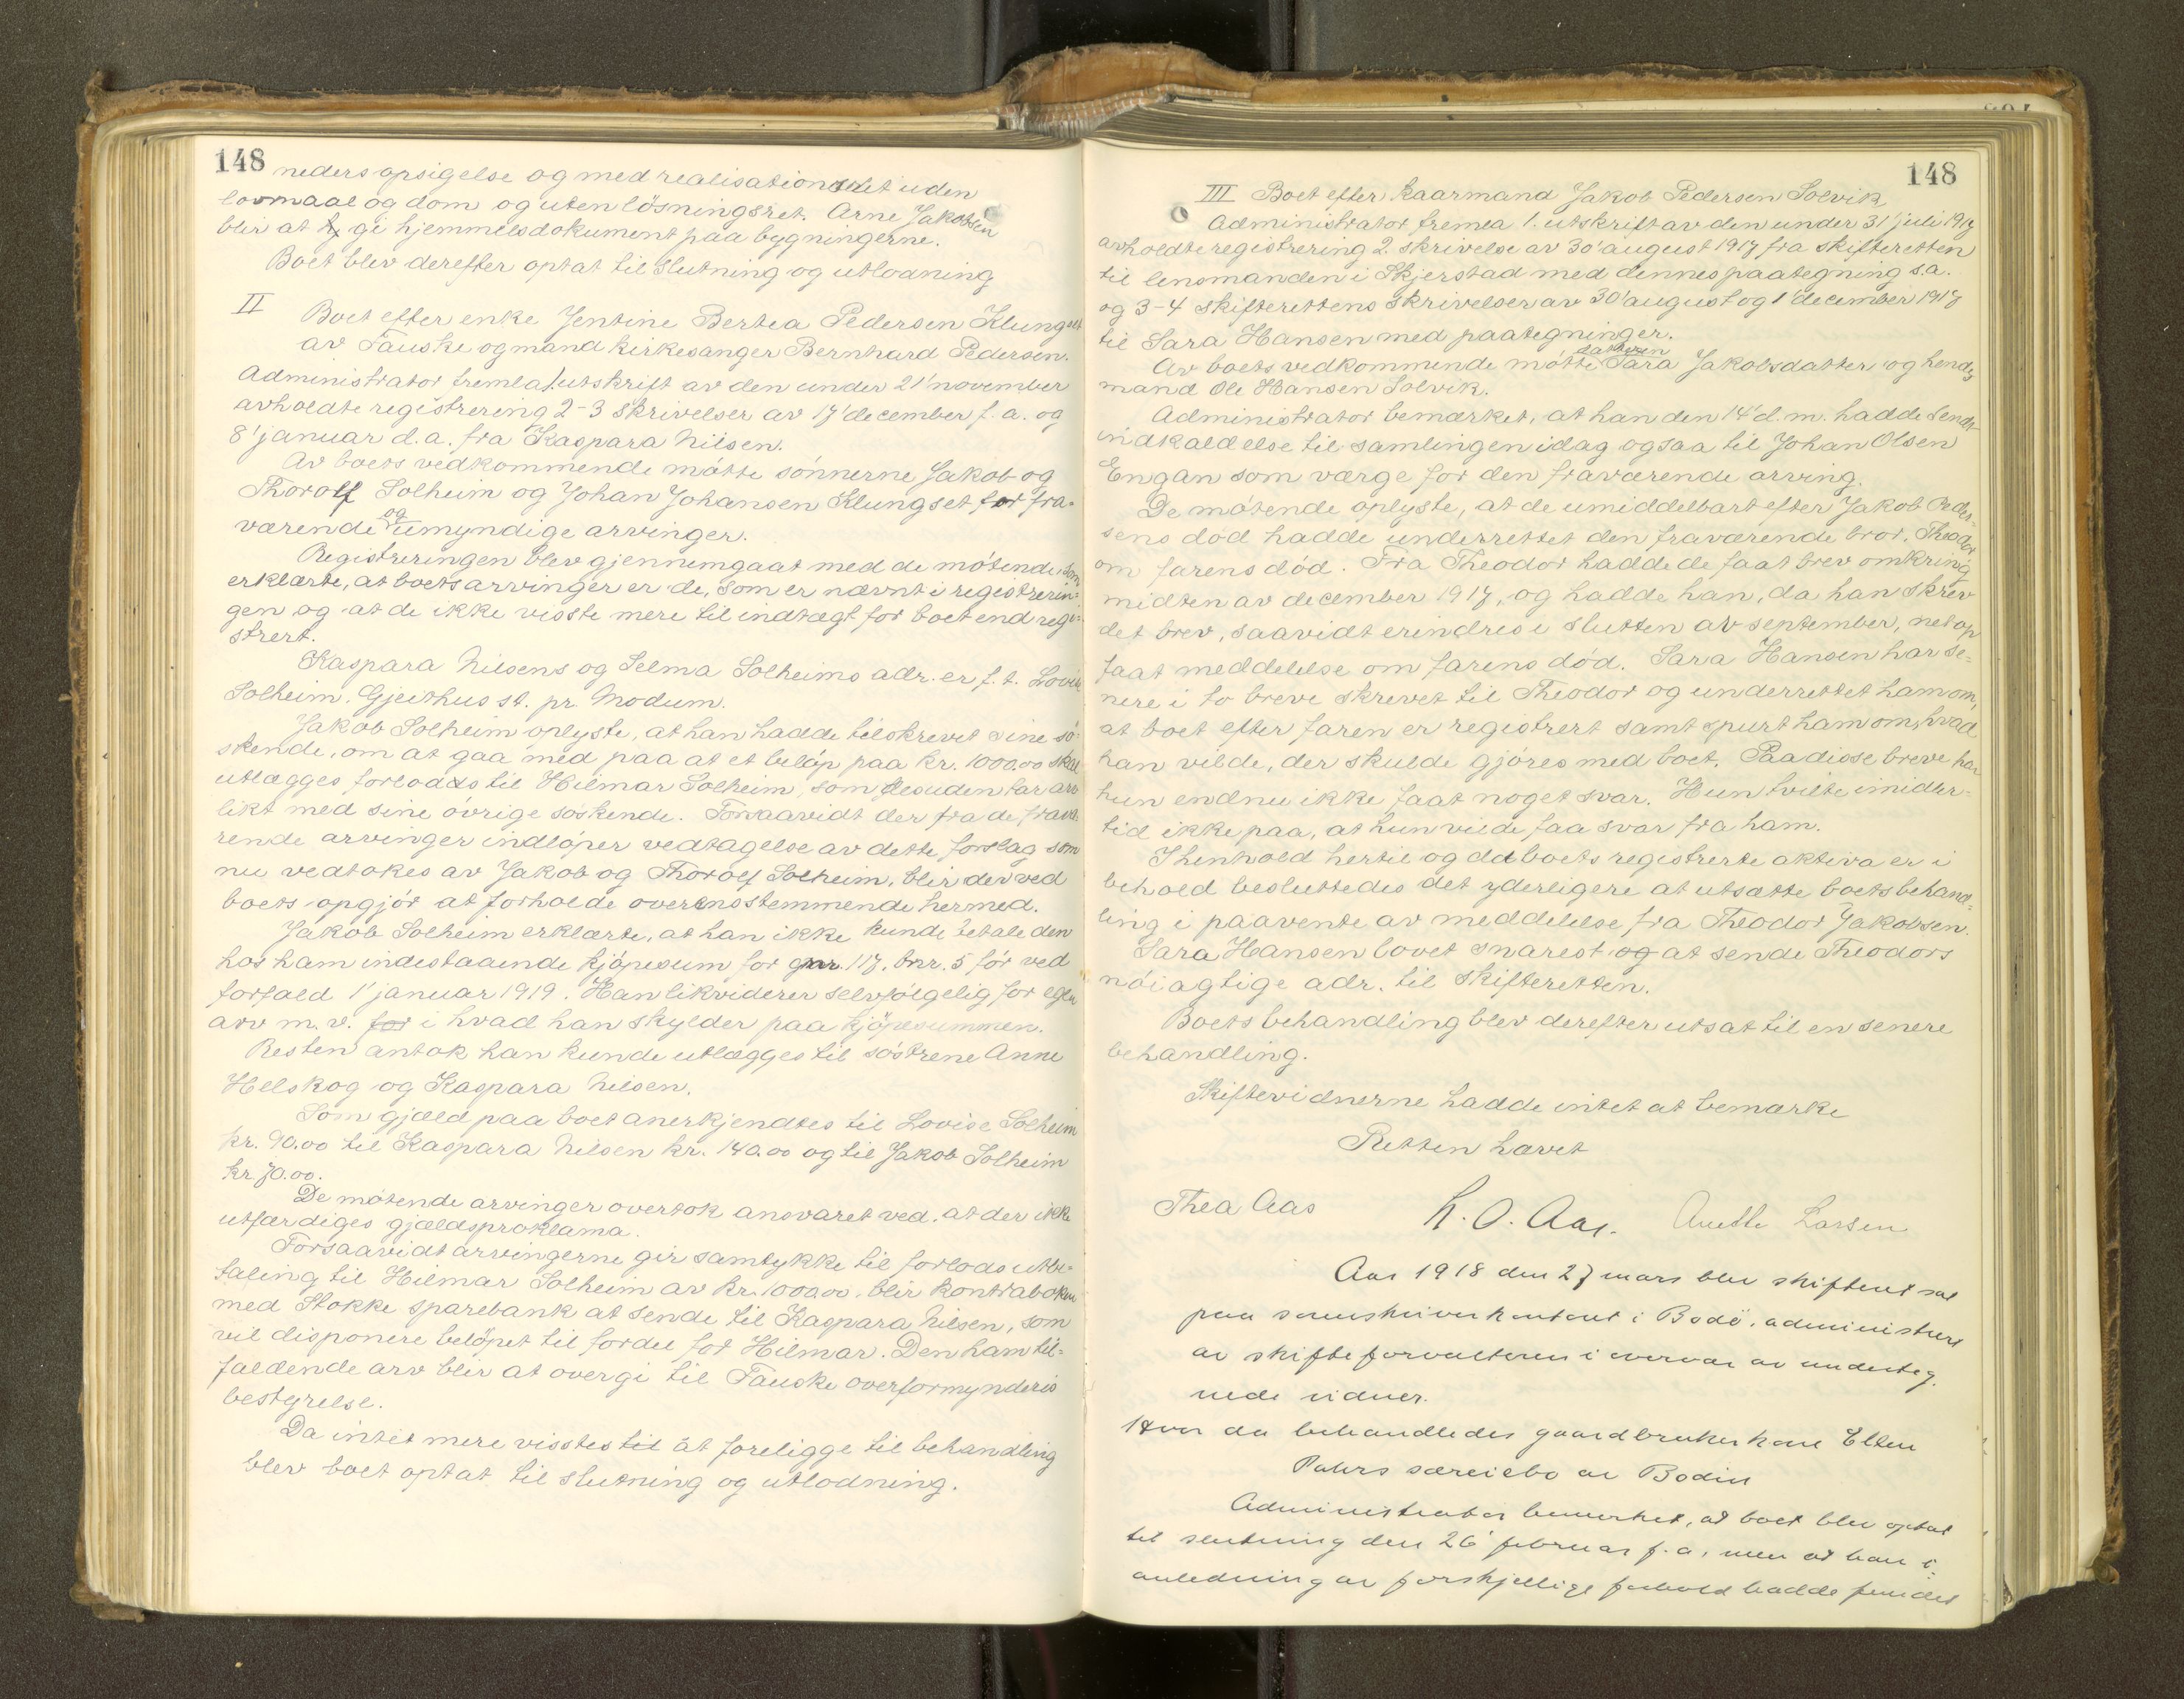 148
neders opsigelse og med realisationsret uden
lovmaal og dom og uten løsningsret. Arne Jakobsen
blir at gi hjemmelsdokument paa bygningerne.
Boet blev derefter optat til slutning og utlodning
II Boet efter enke Jentine Bertea Pedersen Klungset
av Fauske og mand kirkesanger Bernhard Pedersen.
Administrator fremla 1 utskrift av den under 21' november
avholdte registrering 2-3 skrivelser av 17' december f. a. og
8' januar d. a. fra Kaspara Nilsen.
Av boets vedkommende møtte sønnerne Jakob og
Thorolf Solheim og Johan Johansen Klungset for fra-
værende og umyndige arvinger.
Registreringen blev gjennemgaat med de møtende som
erklærte, at boets arvinger er de, som er nævnt i registrerin-
gen og at de ikke visste mere til indtægt for boet end regi-
strert.
Kaspara Nilsens og Selma Solheims adr. er f. t. Lovise
Solheim. Gjeithus st. pr. Modum.
Jakob Solheim oplyste, at han hadde tilskrevet sine sø-
skende, om at gaa med paa at et beløp paa kr. 1000.00 skal
utlægges forlodds til Hilmar Solheim, som desuden tar arv
likt med sine øvrige søskende. Forsaavidt der fra de fravæ-
rende arvinger indløper vedtagelse av dette forslag som
nu vedtokes av Jakob og Thorolf Solheim, blir der ved
boets opgjør at forholde overensstemmende hermed.
Jakob Solheim erklærte, at han ikke kunde betale den
hos ham indestaaende kjøpesum for gnr. 117, bnr. 5 før ved
forfald 1' januar 1919. Han likviderer selvfølgelig for egen
arv m. v. for i hvad han skylder paa kjøpesummen.
Resten antok han kunde utlægges til søstrene Anne
Helskog og Kaspara Nilsen.
Som gjæld paa boet anerkjendtes til Lovise Solheim
kr. 90.00 til Kaspara Nilsen kr. 140.00 og til Jakob Solheim
kr 70.00.
De møtende arvinger overtok ansvaret ved, at der ikke
utfærdiges gjældsproklama.
Forsaavidt arvingerne gir samtykke til forlods utbe-
taling til Hilmar Solheim av kr. 1000.00, blir kontraboken
med Stokke sparebank at sende til Kaspara Nilsen, som
vil disponere beløpet til fordel for Hilmar. Den ham til-
faldende arv blir at overgi til Fauske overformynderis
bestyrelse.
Da intet mere visstes til at foreligge til behandling
blev boet optat til slutning og utlodning.
148
III Boet efter kaarmand Jakob Pedersen Solvik
Administrator fremla 1. utskrift av den under 31' juli 1917
avholdte registrering 2. skrivelse av 30' august 1917 fra skifteretten
til lensmanden i Skjerstad med dennes paategning s.a.
og 3-4 skifterettens skrivelser av 30' august og 1' december 1917
til Sara Hansen med paategninger.
Av boets vedkommende møtte datteren Sara Jakobsdatter og hendes
mand Ole Hansen Solvik.
Administrator bemærket, at han den 14' d. m. hadde sendt
indkaldelse til samlingen idag ogsaa til Johan Olsen
Engan som værge for den fraværende arving.
De møtende oplyste, at de umiddelbart efter Jakob Peder-
sens død hadde underrettet den fraværende bror, Theodor
om farens død. Fra Theodor hadde de faat brev omkring
midten av december 1917, og hadde han, da han skrev
det brev, saavidt erindres i slutten av september, netop
faat meddelelse om farens død. Sara Hansen har se-
nere i to breve skrevet til Theodor og underrettet ham om,
at boet efter faren er registrert samt spurt ham om, hvad
han vilde, der skulde gjøres med boet. Paa disse breve har
hun endnu ikke faat noget svar. Hun tvilte imidler-
tid ikke paa, at hun vilde faa svar fra ham.
I henhold hertil og da boets registrerte aktiva er i
behold besluttedes det yderligere at utsætte boets behand-
ling i paavente av meddelelse fra Theodor Jakobsen.
Sara Hansen lovet snarest og at sende Theodors
nøiagtige adr. til skifteretten.
Boets behandling blev derefter utsat til en senere
behandling.
Skiftevidnerne hadde intet at bemærke
Retten hævet
Thea Aas K. O. Aas. Anette Larsen
Aar 1918 den 27 mars blev skifteret sat
paa sorenskriverkontoret i Bodø, administrert
av skifteforvalteren i overvær av underteg-
nede vidner.
Hvor da behandledes gaardbrukerkone Ellen
Palers særeiebo av Bodin
Administrator bemerket, at boet blev optat
til slutning den 26' februar f. a, men at han i
anledning av forskjellige forhold hadde fundet